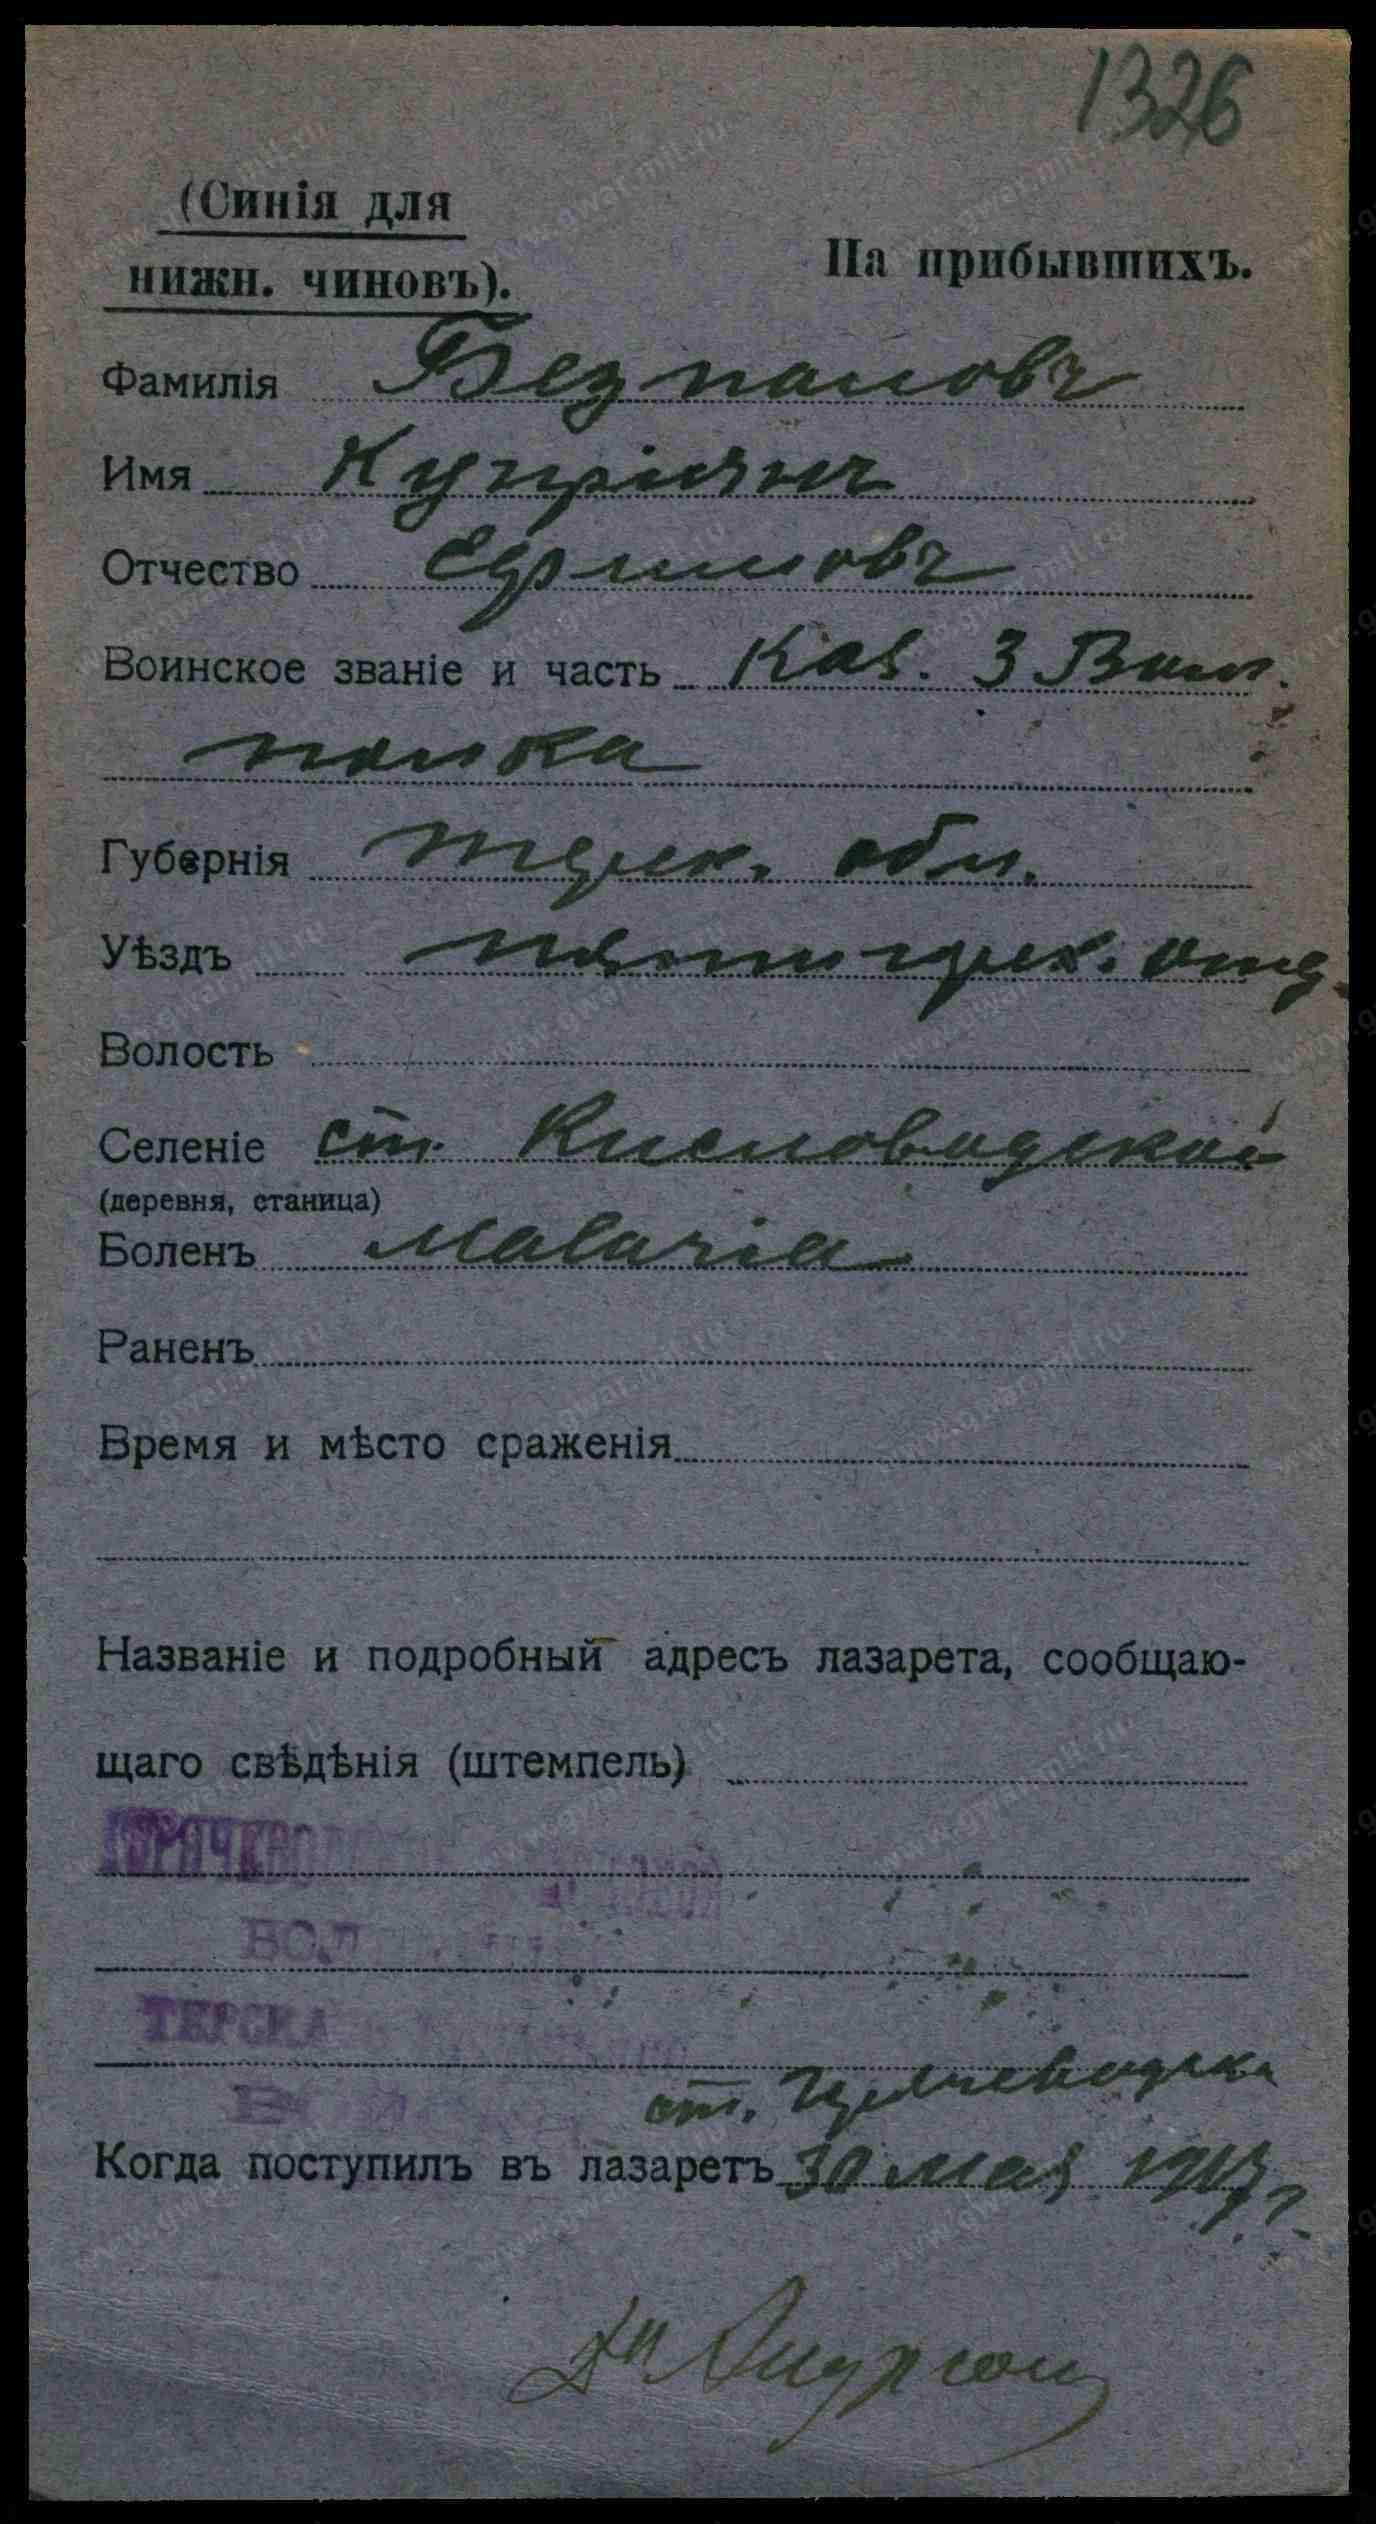 1326
(Синія для
нижн. чиновъ).
На прибывшихъ.
Фамилія Безпаловъ
Имя Купріянъ
Отчество Ефимовъ
Воинское званіе и часть Каз. 3 Волг.
полка
Губернія Терск. обл.
Уѣздъ Пятигорск. отд.
Волость
Селеніе ст. Кисловодской
(деревня, станица)
Боленъ Malaria
Раненъ
Время и мѣсто сраженія
Названіе и подробный адресъ лазарета, сообщаю-
щаго свѣдѣнія (штемпель)
ТЕРСКА
ст. Горячеводск.
Когда поступилъ въ лазаретъ 30 мая